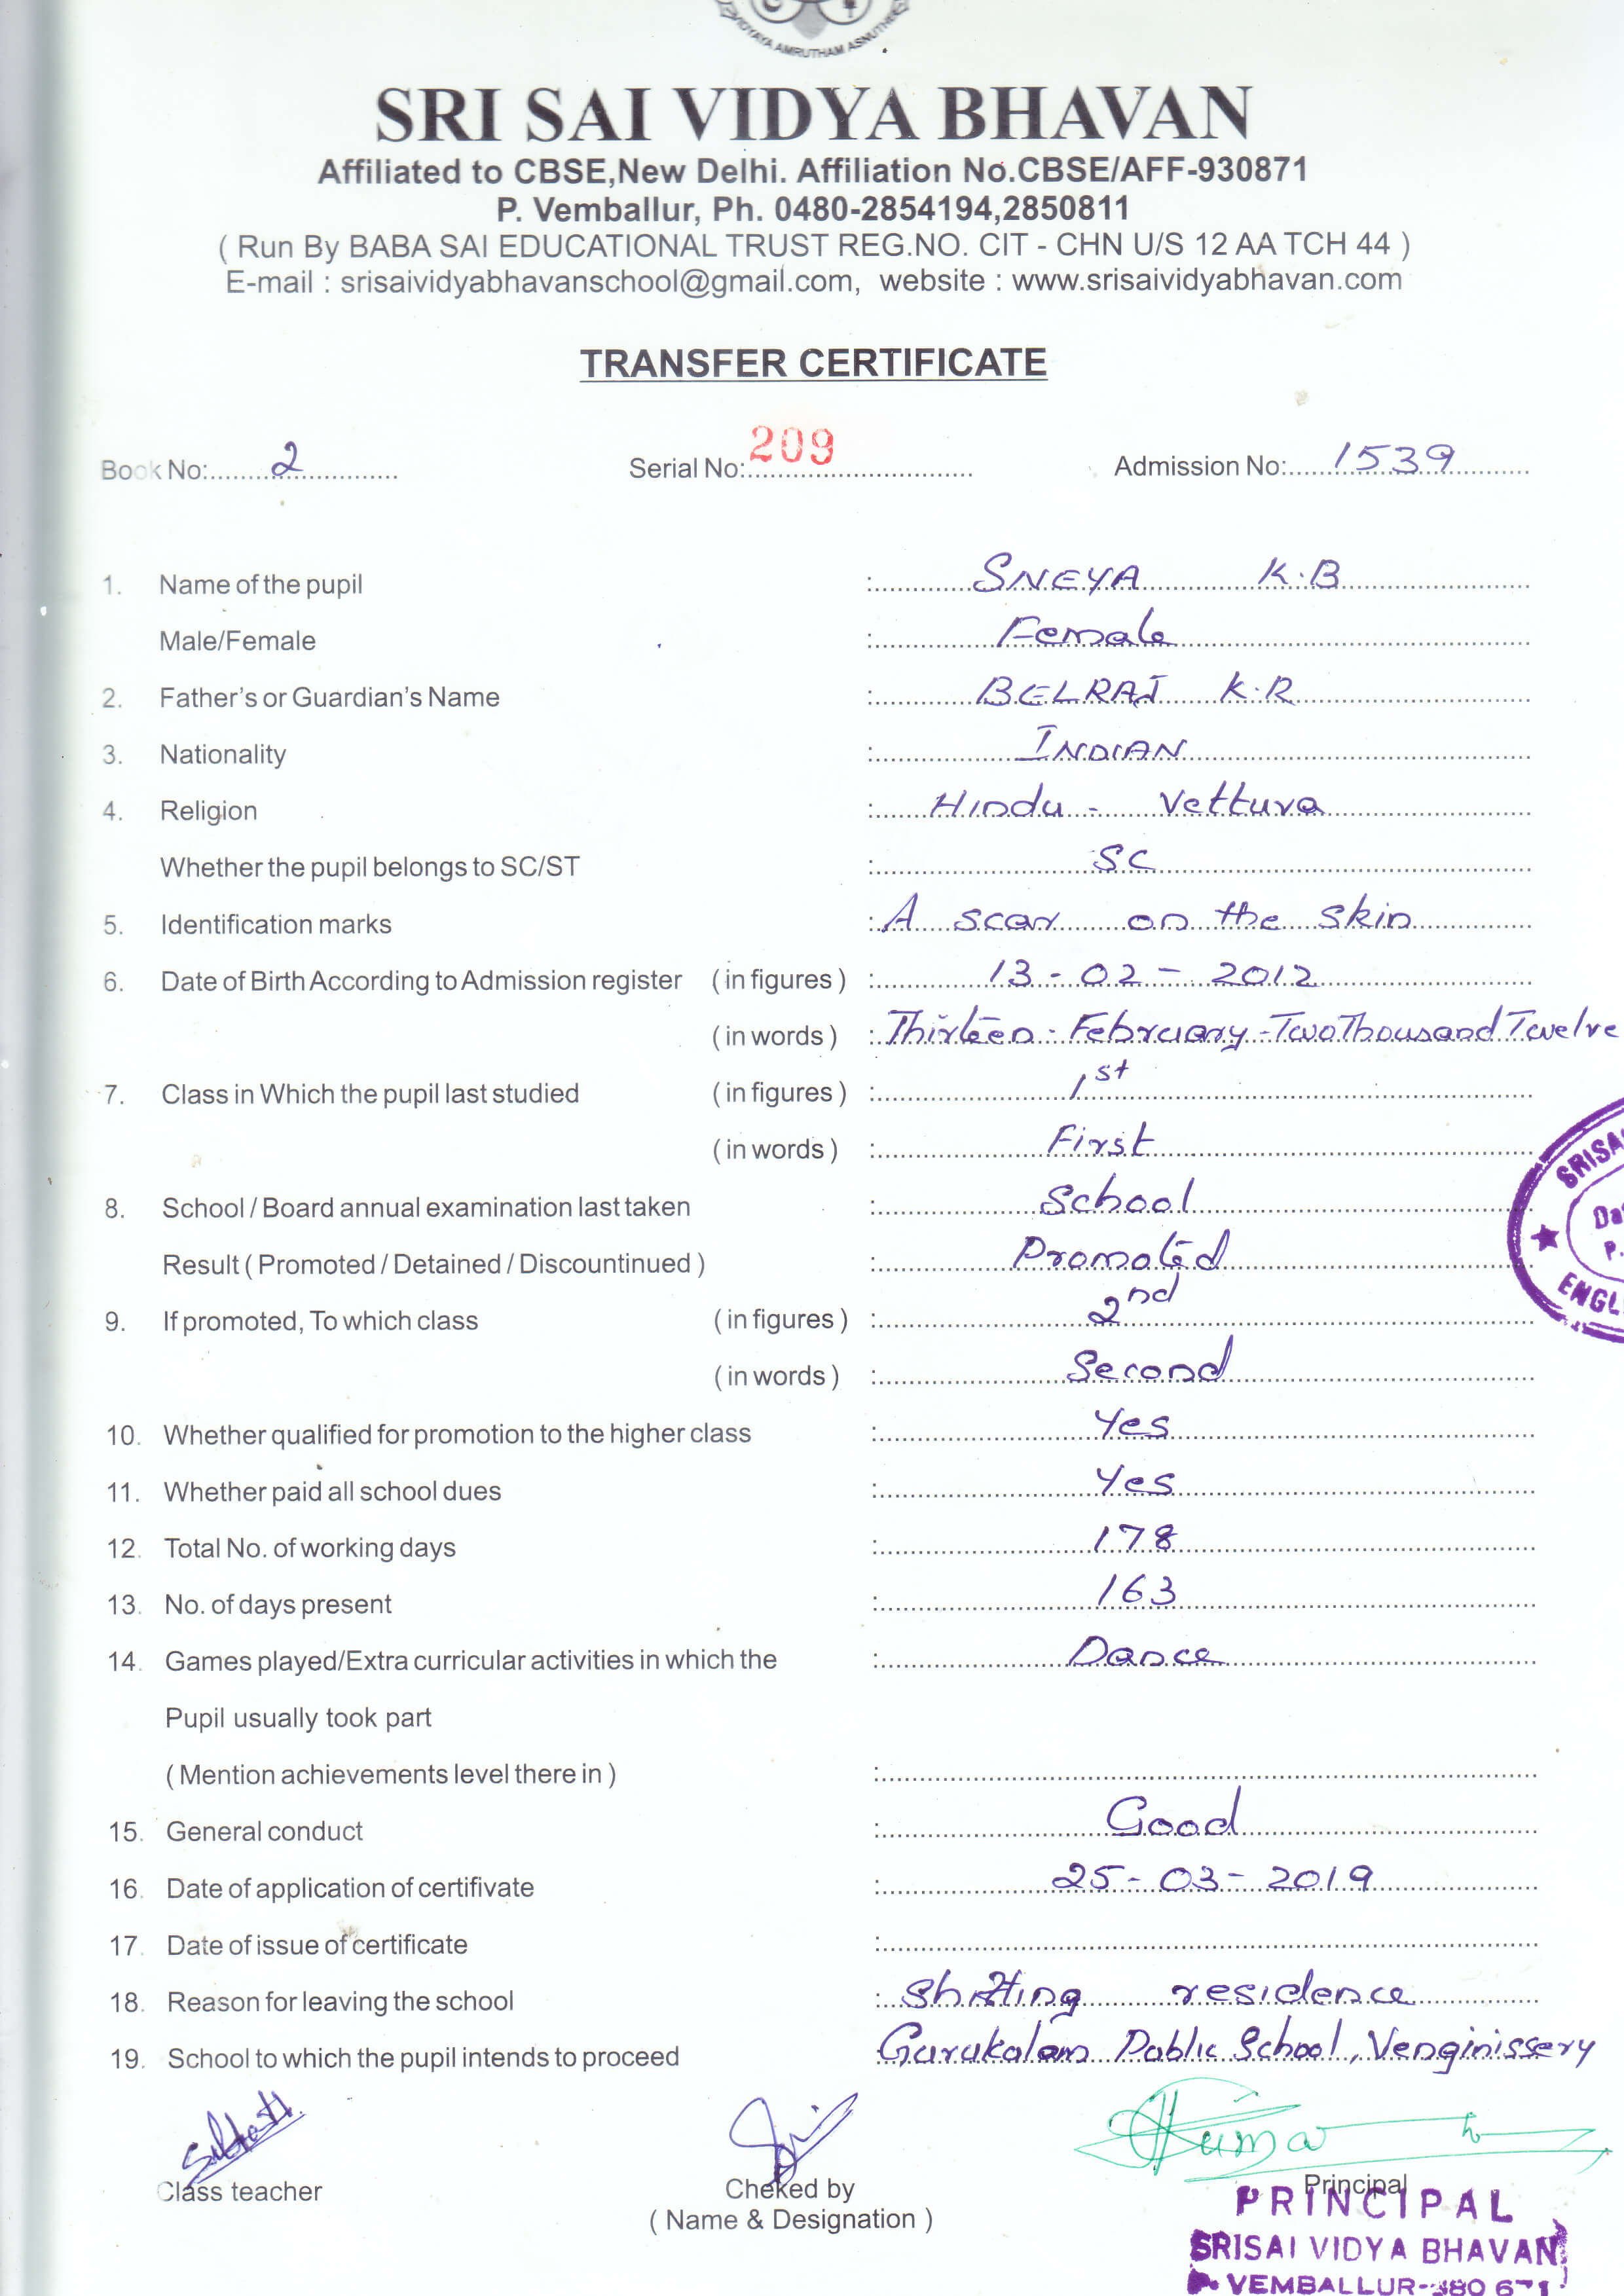 VIDYAYA AMRUTHAM ASNUTHE
SRI SAI VIDYA BHAVAN
Affiliated to CBSE,New Delhi. Affiliation No.CBSE/AFF-930871
P. Vemballur, Ph. 0480-2854194,2850811
( Run By BABA SAI EDUCATIONAL TRUST REG.NO. CIT - CHN U/S 12 AA TCH 44 )
E-mail : srisaividyabhavanschool@gmail.com, website : www.srisaividyabhavan.com
TRANSFER CERTIFICATE
Book No:..........2.......... Serial No:209.......... Admission No:.....1539..........
1. Name of the pupil : SNEYA K.B
Male/Female : Female
2. Father's or Guardian's Name : BELRAJ K.R
3. Nationality : INDIAN
4. Religion : Hindu - Vettuva
Whether the pupil belongs to SC/ST : SC
5. Identification marks : A scar on the skin
6. Date of Birth According to Admission register ( in figures ) : 13 - 02 - 2012
( in words ) : Thirteen - February - Two Thousand Twelve
7. Class in Which the pupil last studied ( in figures ) : 1st
( in words ) : First
8. School / Board annual examination last taken : School
Result ( Promoted / Detained / Discountinued ) : Promoted
9. If promoted, To which class ( in figures ) : 2nd
( in words ) : Second
10. Whether qualified for promotion to the higher class : Yes
11. Whether paid all school dues : Yes
12. Total No. of working days : 178
13. No. of days present : 163
14. Games played/Extra curricular activities in which the : Dance
Pupil usually took part
( Mention achievements level there in ) :
15. General conduct : Good
16. Date of application of certifivate : 25 - 03 - 2019
17. Date of issue of certificate :
18. Reason for leaving the school : Shifting residence
19. School to which the pupil intends to proceed : Gurukalam Public School, Venginissery
SRISAI
Da
P.
ENGL
Class teacher Cheked by Principal
( Name & Designation )
PRINCIPAL
SRISAI VIDYA BHAVAN
P. VEMBALLUR-680 671